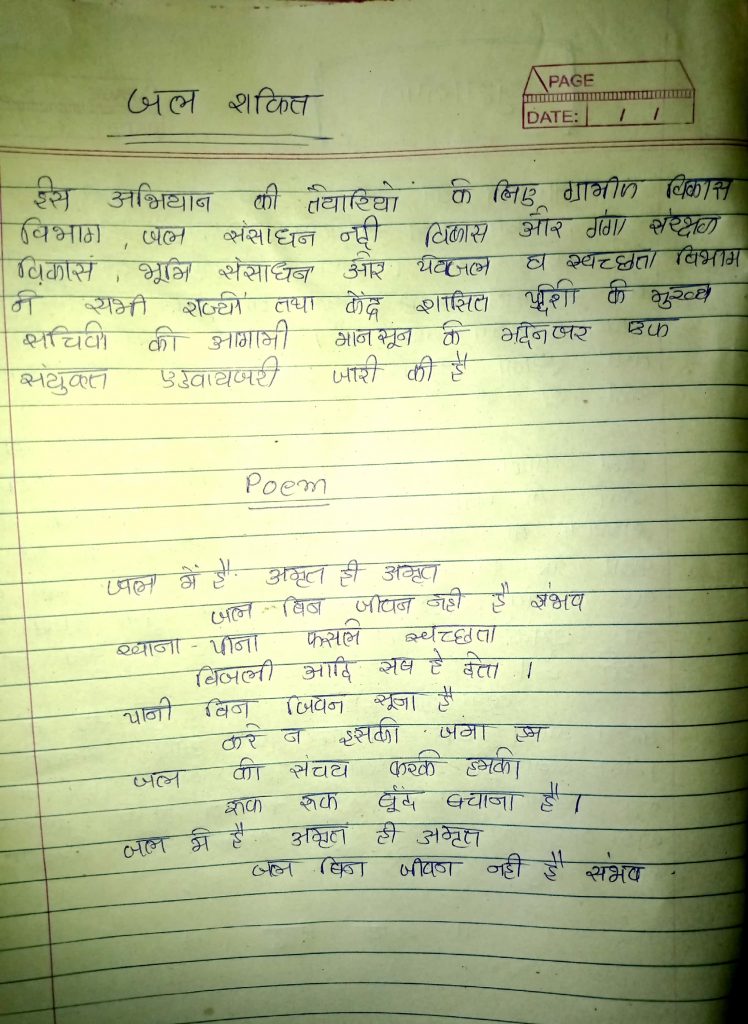 PAGE
DATE: / /
जल शक्ति
इस अभियान की तैयारियो के लिए ग्रामीण विकास
विभाग, जल संसाधन नदी विकास और गंगा संरक्षण
विकास, भूमि संसाधन और पेयजल व स्वच्छता विभाग
ने सभी राज्यों तथा केंद्र शासित प्रदेशो के मुख्य
सचिवो को आगामी मानसून के मद्देनजर एक
संयुक्त एडवायजरी जारी की है
Poem
जल में है अमृत ही अमृत
जल बिन जीवन नही है संभव
खाना - पीना फसले स्वच्छता
बिजली आदि सब है देता ।
पानी बिन जिवन सूना है
करे न इसकी हम
जल की संचय करके हमकी
एक एक बूंद बचाना है ।
जल मे है अमृत ही अमृत
जल बिन जीवन नही है संभव